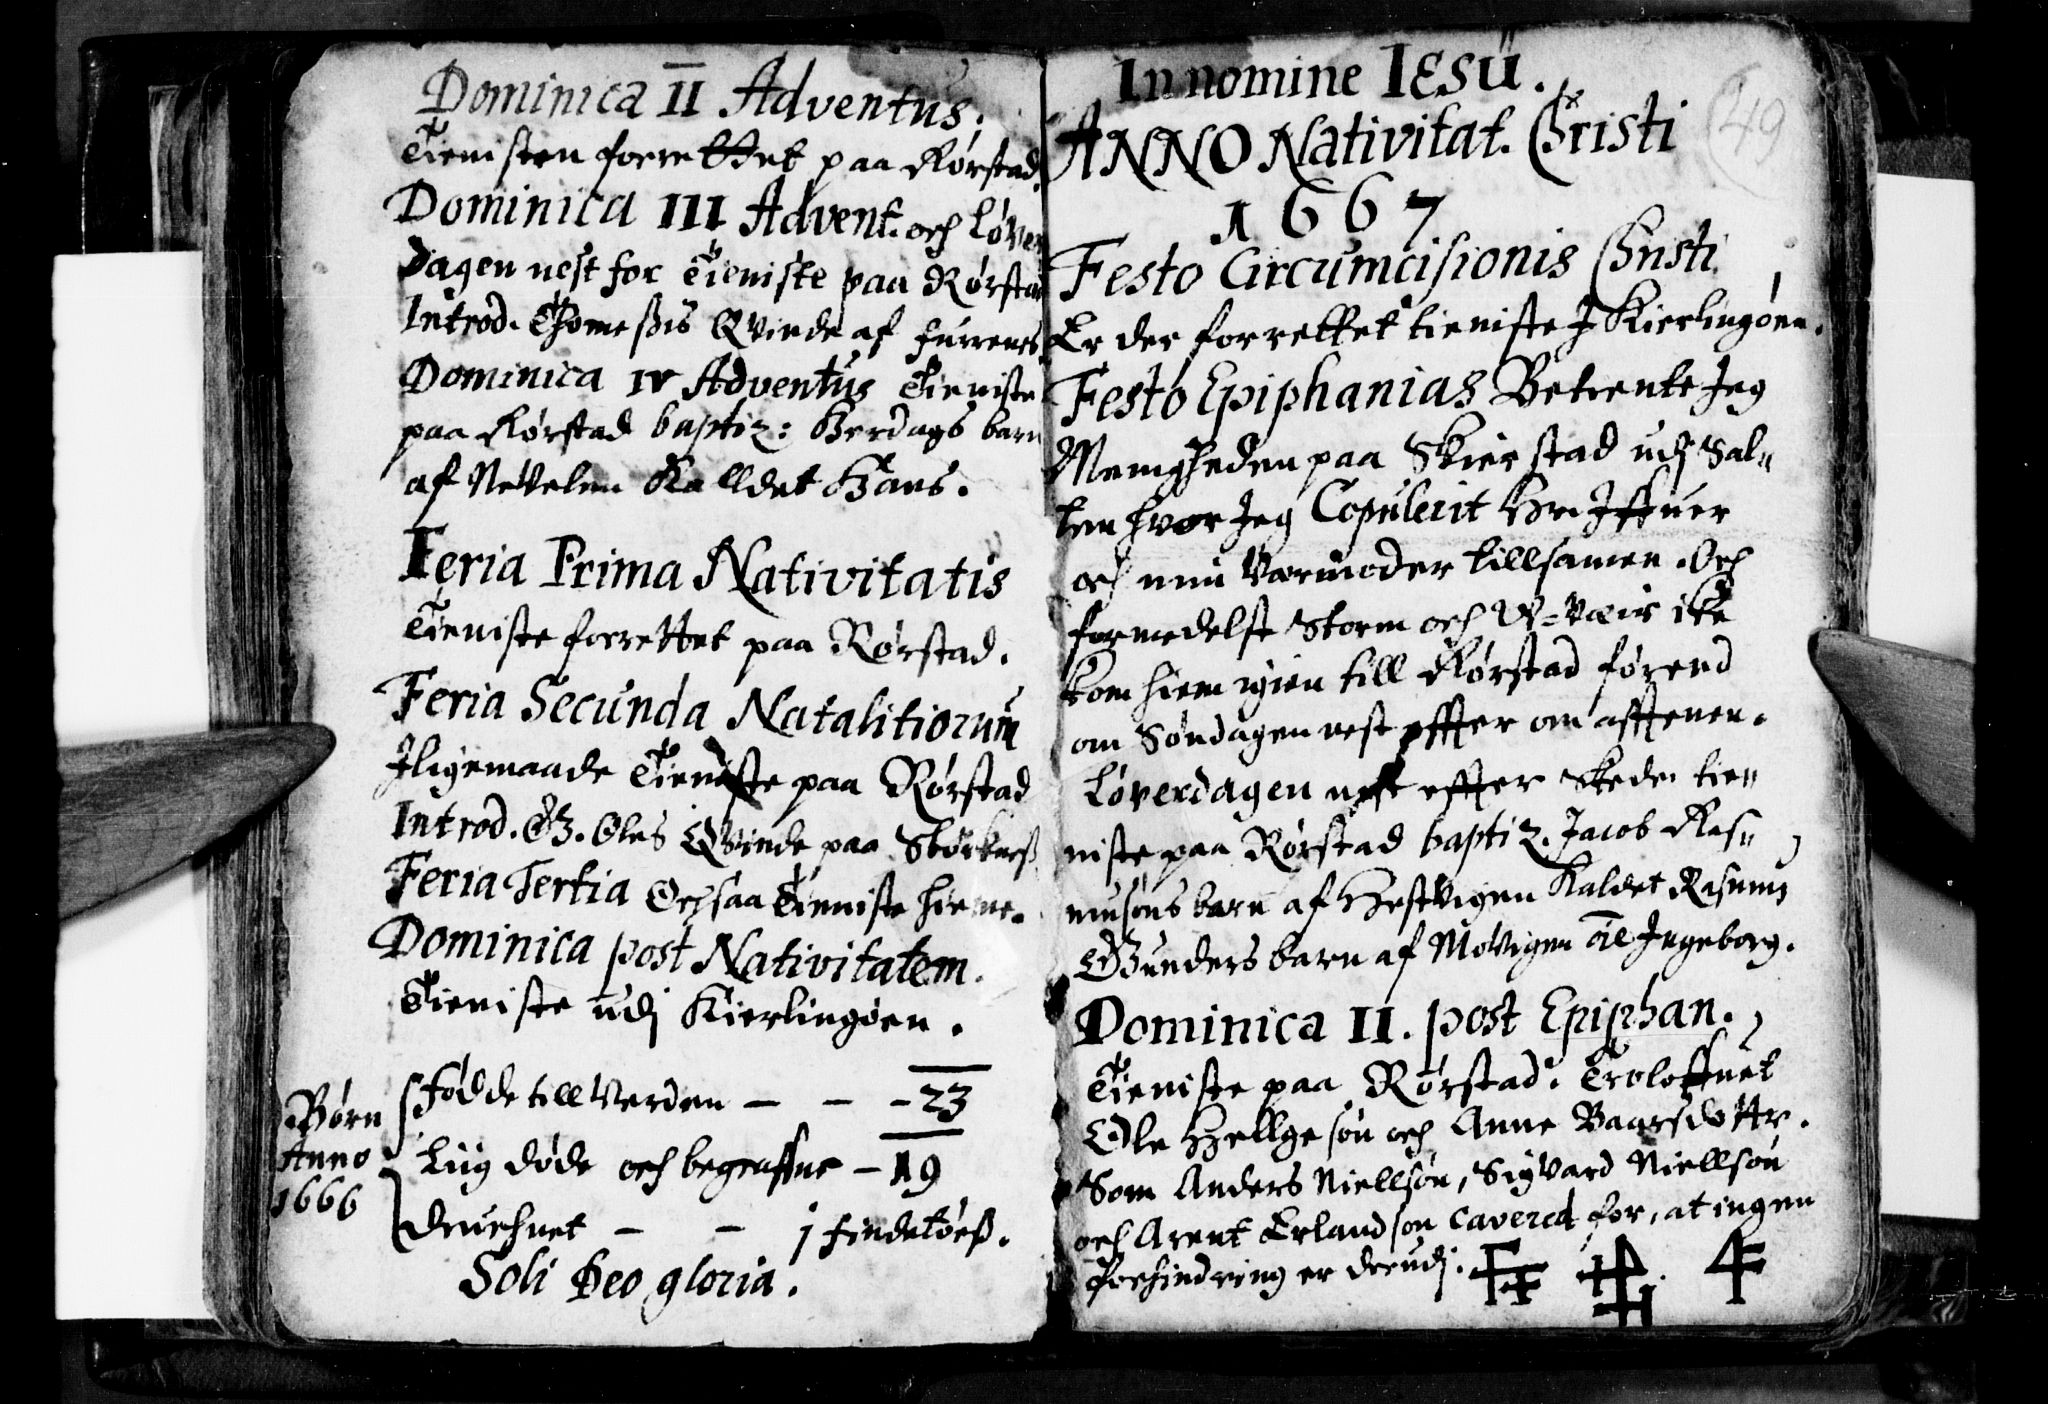 Dominica II Adventus.
Tienisten forrettet paa Rørstad.
Dominica III Advent. och Løver
dagen nest for Tieniste paa Rørstad
Introd. Thomeßis Qvinde af Furrenes
Dominica IV Adventus Tieniste
paa Rørstad baptiz: Herdags barn
af Nevelen Kalldet Hans.
Feria Prima Nativitatis
Tieniste forrettet paa Rørstad.
Feria Secunda Natalitiorum
Jligemaade Tieniste paa Rørstad
Introd. Oles Qvinde paa
Feria Tertia Ochsaa Tieniste hieme.
Dominica post Nativitatem.
Tieniste udj Kierlingøen.
Børn Anno 1666
Fødde till Verden — — - 23
Liig døde och begraffne — 19
Druchnet — — j Findetøeß.
Soli Deo gloria.
In nomine Iesu.
49
ANNO Nativitat. Christi
1667
Festo Circumcisionis Christi
Er der forrettet tieniste J Kierlingøen.
Festo Epiphanias Betiente Jeg
Menigheden paa Skierstad udj Sal„
ten hvor Jeg Copulerit Hr. Jffuer
och min Værmoder tillsamen. Och
formedelst Storm och W=Vær ike
kom hiem igien till Rørstad førend
om Søndagen nest effter om afftenen.
Løverdagen nest effter skede tie„
niste paa Rørstad baptiz. Jacob Ras„
musøns barn af Hestvigen Kaldet Rasmus
Gunders barn af Movigen Jngeborg.
Dominica II. post Epiphan.
Tieniste paa Rørstad. Troloffuet
Ole Hellgesøn och Anne Baarsdottr.
Som Anders Niellsøn, Sigvard Niellsøn
och Arent Erlandsøn cavered for, at ingen
forhindring er derudj.